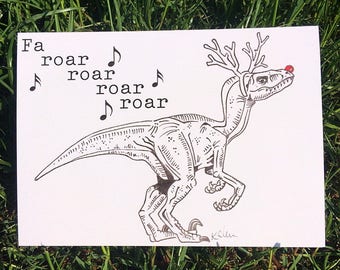 Fa
roar
roar
roar
roar